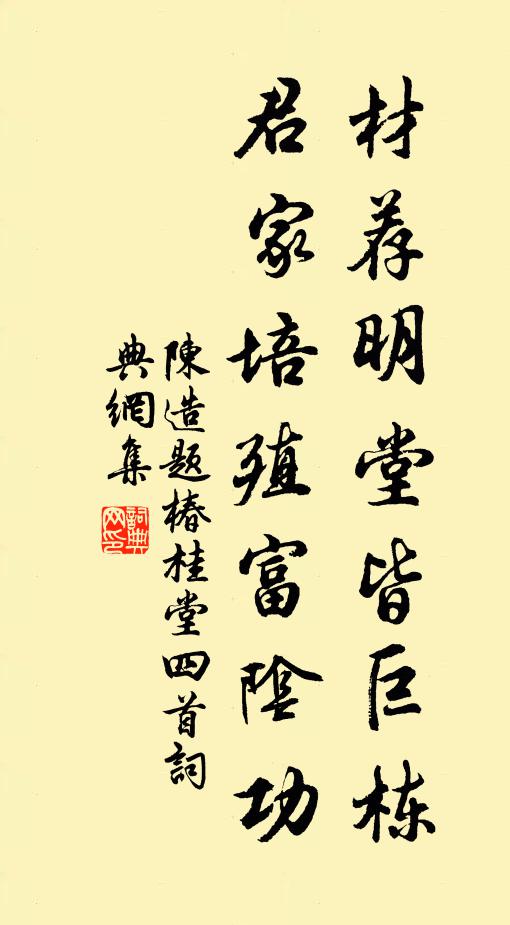 材荐明堂皆巨栋
君家培殖富陰功
陳造題椿桂堂四首詞
典網集
詞典網印